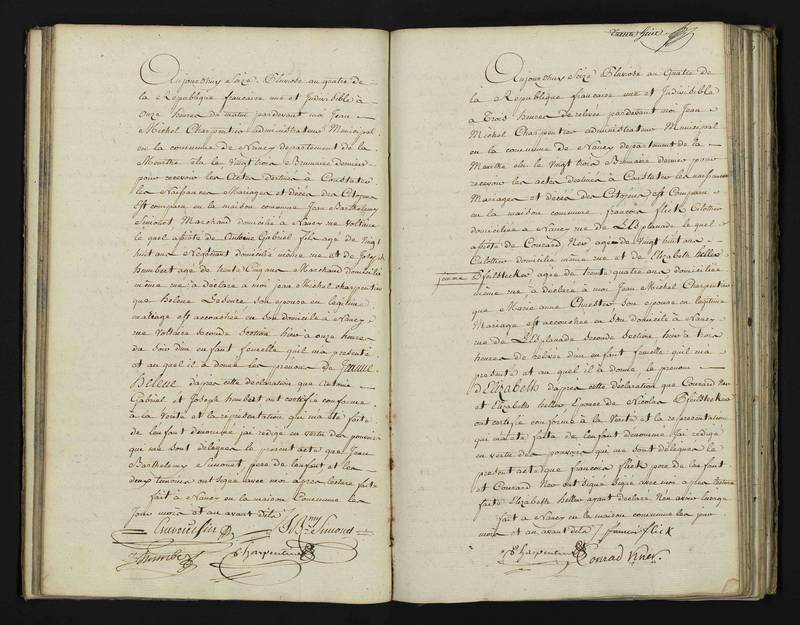 Aujourdhuy Seize Pluviose an quatre de
la République francaise une et Indivisible à
onze heures du matin pardevant moi Jean
Michel Charpentier administrateur Municipal
en la commune de Nancy departement de la
Meurthe élu le Vingt trois Brumaire dernier
pour recevoir les Actes destinés à Constater
les Naissances Mariages et décès des Citoyens
Est comparu en la maison commune Jean Barthelemy
Simonet Marchand domicilié à Nancy rue Voltaire
le quel assisté de Antoine Gabriel fils agé de Vingt
huit ans Négotiant domicilié même rue et de Joseph
humbert agé de trente Cinq ans Marchand domicilié
même rue à déclaré a moi jean Michel charpentier
que Helene son epouse en legitime
mariage est accouchée en son domicile à Nancy
rue Voltaire seconde section hier à onze heures
du soir d'un enfant femelle quil ma presenté
et au quel il à donné les prenoms de Jeanne
Helene dapres cette déclaration que Antoine
Gabriel et Joseph humbert ont certifié conforme
à la Verité et la représentation qui m'a été faite
de l'enfant denommé jai rédigé en vertu des pouvoirs
qui me sont délégués le present acte que Jean
Barthelemy Simonet pere de lenfant et les
deux temoins ont signé avec moi apres lecture faite
fait à Nancy en la maison Commune les
Jour mois et an avant dits
humbert Charpentier
trente huit
Aujourdhuy Seize Pluviose an Quatre de
la République francaise une et Indivisible
à Trois heures de relevée pardevant moi Jean
Michel Charpentier administrateur Municipal
en la commune de Nancy departement de la
Meurthe élu le Vingt trois Brumaire dernier pour
recevoir les actes destinés à Constater les naissances
Mariages et décès des Citoyens est Comparu
en la maison commune françois flick Culottier
domicilié à Nancy rue de L'Esplanade le quel
assisté de Conrad agé de Vingt huit ans
Culottier domicilié même rue et de Elizabeth heller
femme Pfeilsticker agée de trente quatre ans domiciliée
même rue à déclaré à moi Jean Michel Charpentier
que Marie anne son epouse en legitime
Mariage est accouchée en son domicile à Nancy
rue de L'Esplanade seconde Section hier à trois
heures de relevée d'un enfant femelle quil ma
presenté et au quel il à donné le prenom
d'Elizabeth dapres cette déclaration que Conrad
et Elizabeth heller Epouse de Nicolas Pfeilsticker
ont certifié conforme à la Verité et la representation
qui m'a eté faite de lenfant denommé Jai rédigé
en vertu des pouvoirs qui me sont délégués le
présent acte que francois flick pere de lenfant
et Conrad ont signé avec moi apres lecture
faite Elizabeth heller ayant declaré
fait à Nancy en la maison commune les jour
mois et an avant dits francis flick
Charpentier Conrad